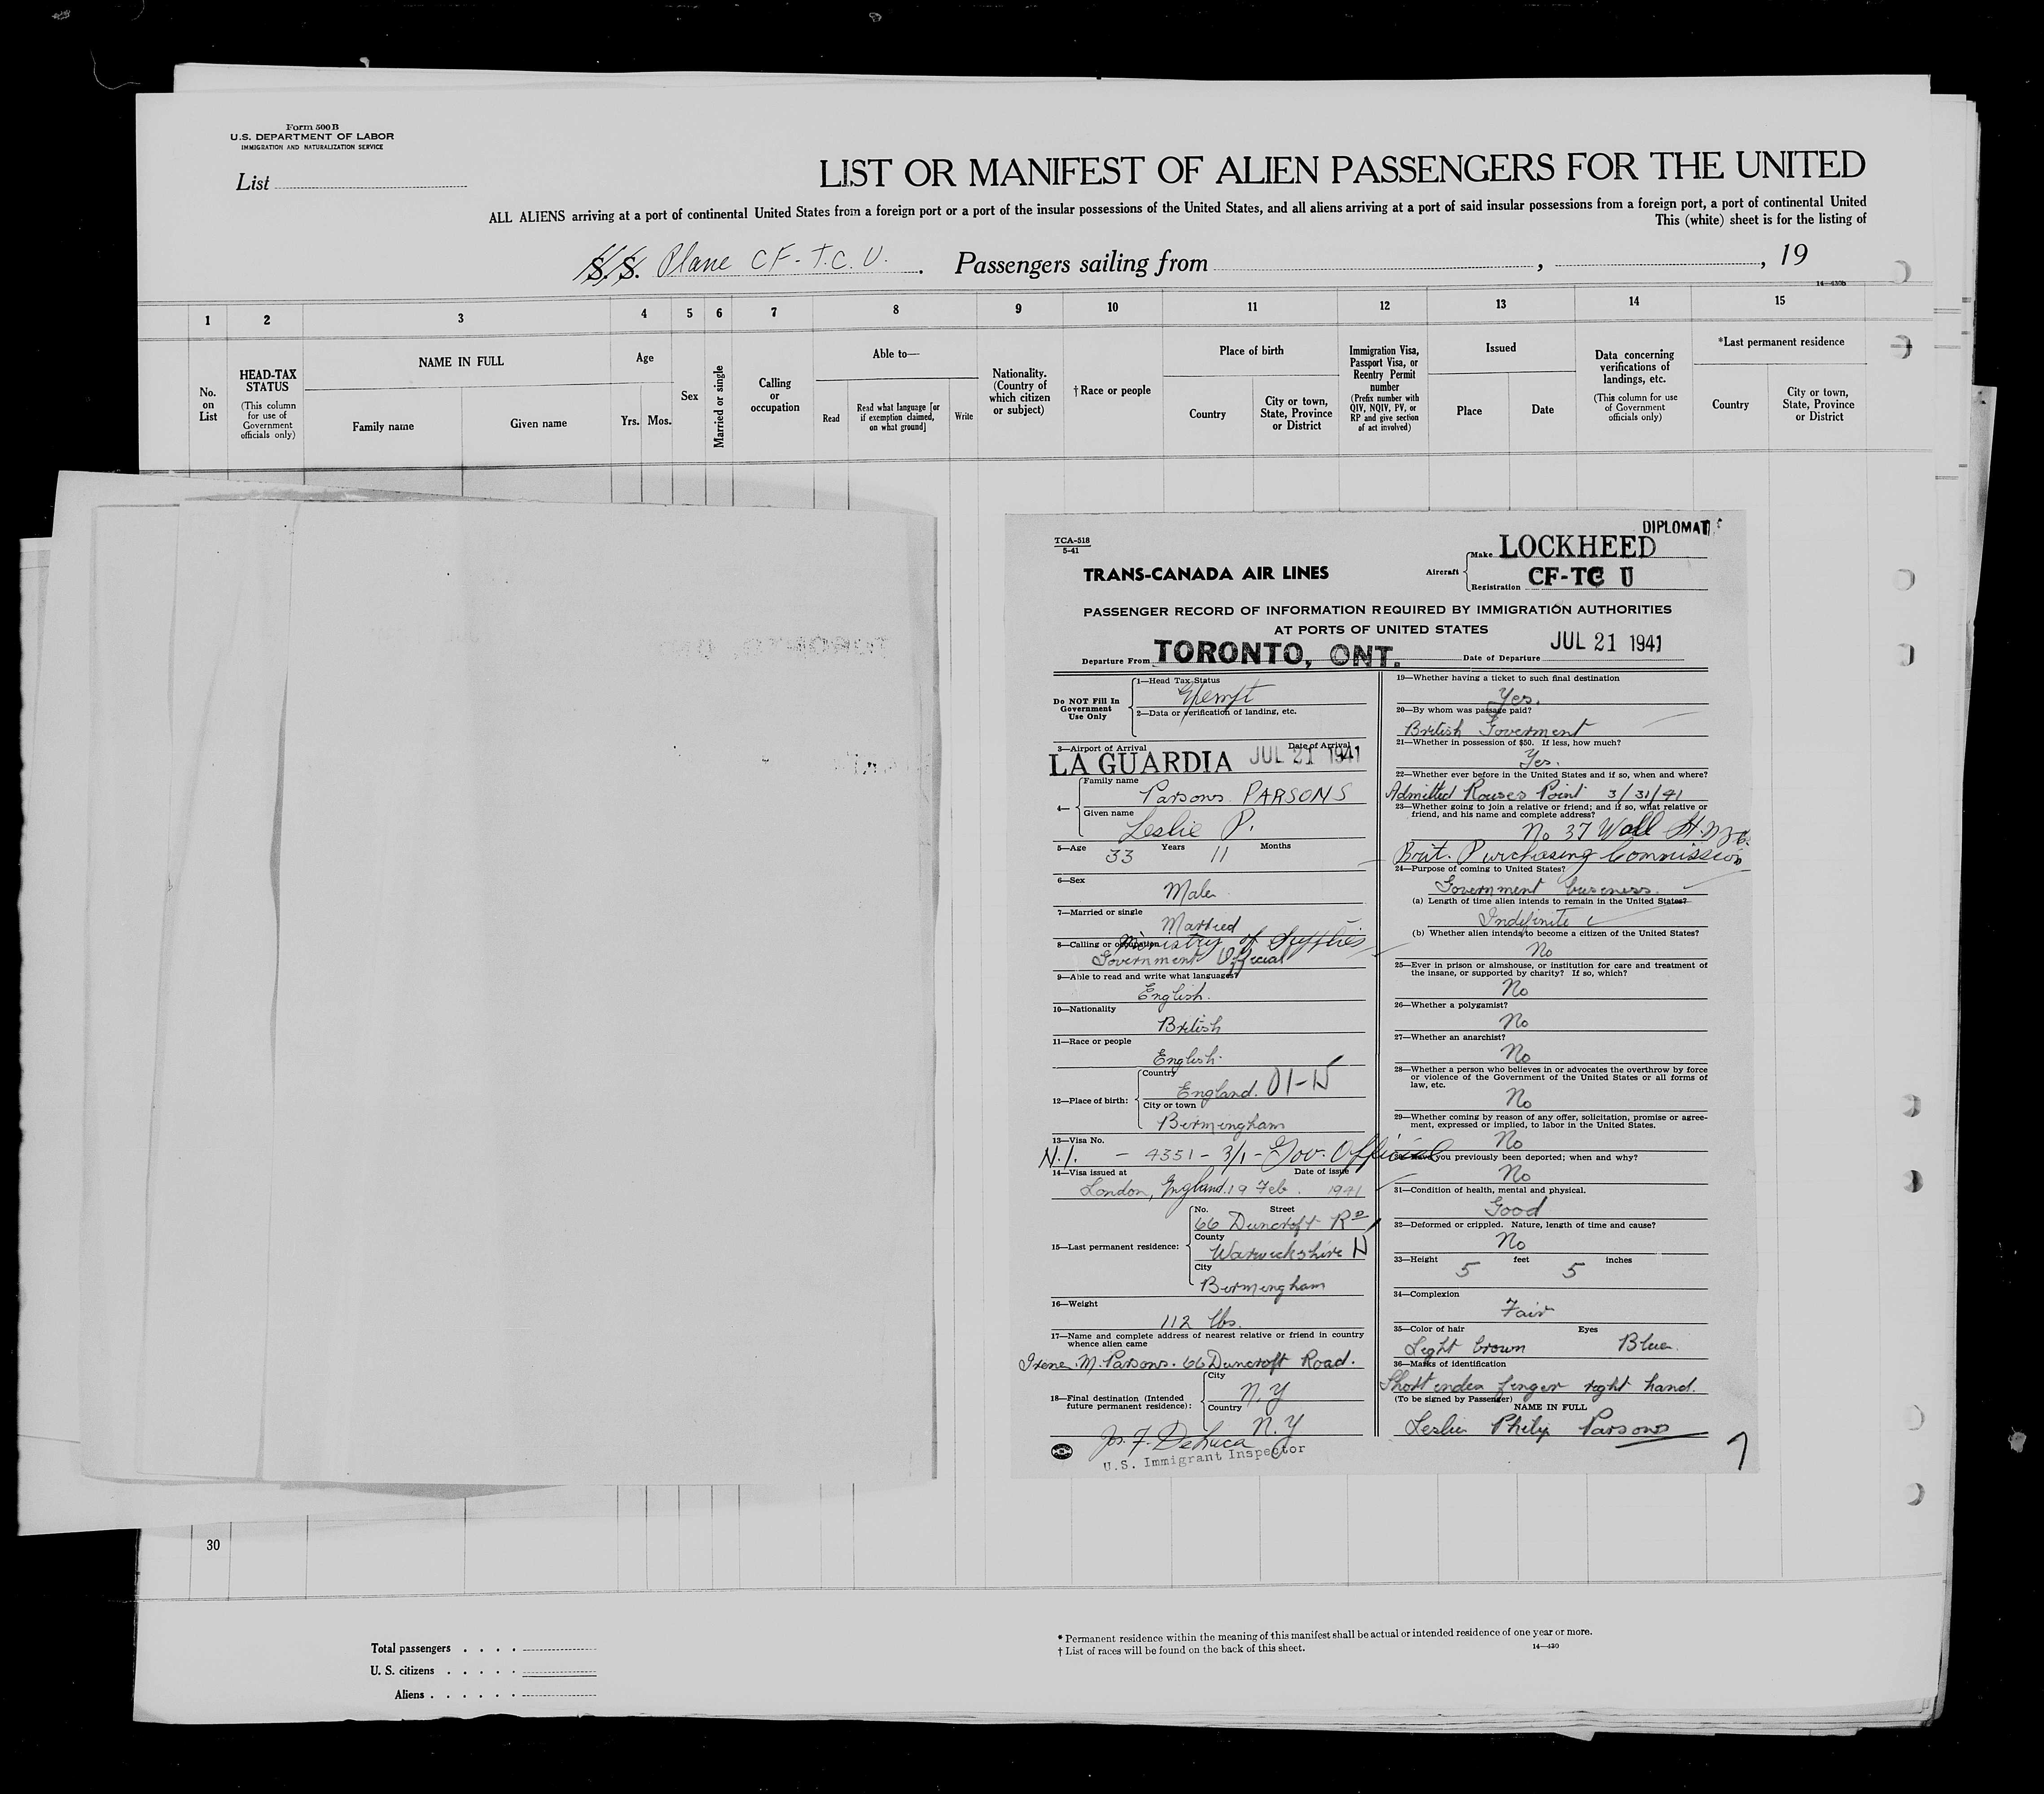 Form 500 B
U.S. DEPARTMENT OF LABOR
IMMIGRATION AND NATURALIZATION SERVICE
List
LIST OR MANIFEST OF ALIEN PASSENGERS FOR THE UNITED
ALL ALIENS arriving at a port of continental United States from a foreign port or a port of the insular possessions of the United States, and all aliens arriving at a port of said insular possessions from a foreign port, a port of continental United
This (white) sheet is for the listing of
S.S. Plane CF-T.C.U. Passengers sailing from , , 19
14—430b
1 2 3 4 5 6 7 8 9 10 11 12 13 14 15
No. on List
HEAD-TAX STATUS
(This column for use of Government officials only)
NAME IN FULL
Family name
Given name
Age
Yrs. Mos.
Sex
Married or single
Calling or occupation
Able to—
Read
Read what language [or if exemption claimed, on what ground]
Write
Nationality. (Country of which citizen or subject)
† Race or people
Place of birth
Country
City or town, State, Province or District
Immigration Visa, Passport Visa, or Reentry Permit number
(Prefix number with QIV, NQIV, PV, or RP and give section of act involved)
Issued
Place
Date
Data concerning verifications of landings, etc.
(This column for use of Government officials only)
*Last permanent residence
Country
City or town, State, Province or District
DIPLOMAT
TCA-518
5-41
TRANS-CANADA AIR LINES
Aircraft
Make LOCKHEED
Registration CF-TC U
PASSENGER RECORD OF INFORMATION REQUIRED BY IMMIGRATION AUTHORITIES
AT PORTS OF UNITED STATES
Departure From TORONTO, ONT. Date of Departure JUL 21 1941
Do NOT Fill In Government Use Only
1—Head Tax Status
Exempt
2—Data or verification of landing, etc.
3—Airport of Arrival Date of Arrival
LA GUARDIA JUL 21 1941
4—
Family name
Parsons PARSONS
Given name
Leslie P.
5—Age 33 Years 11 Months
6—Sex
Male
7—Married or single
Married
8—Calling or occupation Ministry of Supplies
Government Official
9—Able to read and write what languages?
English.
10—Nationality
British
11—Race or people
English.
12—Place of birth:
Country
England. 01-N
City or town
Birmingham
13—Visa No.
N.I. - 4351 - 3/1 - Gov. Official
14—Visa issued at Date of issue
London, England. 19 Feb. 1941
15—Last permanent residence:
No. Street
66 Duncroft Rd
County
Warwickshire N
City
Birmingham
16—Weight
112 lbs.
17—Name and complete address of nearest relative or friend in country
whence alien came
Irene. M. Parsons. 66 Duncroft Road.
18—Final destination (Intended
future permanent residence):
City
N.Y
Country
N.Y
Jos. F. DeLuca
U.S. Immigrant Inspector
19—Whether having a ticket to such final destination
Yes.
20—By whom was passage paid?
British Goverment
21—Whether in possession of $50. If less, how much?
Yes.
22—Whether ever before in the United States and if so, when and where?
Admitted Rouses Point 3/31/41
23—Whether going to join a relative or friend; and if so, what relative or
friend, and his name and complete address?
No 37 Wall St. N.Y.C.
Brit. Purchasing Commission
24—Purpose of coming to United States?
Government business.
(a) Length of time alien intends to remain in the United States?
Indefinite
(b) Whether alien intends to become a citizen of the United States?
No
25—Ever in prison or almshouse, or institution for care and treatment of
the insane, or supported by charity? If so, which?
No
26—Whether a polygamist?
No
27—Whether an anarchist?
No
28—Whether a person who believes in or advocates the overthrow by force
or violence of the Government of the United States or all forms of
law, etc.
No
29—Whether coming by reason of any offer, solicitation, promise or agree-
ment, expressed or implied, to labor in the United States.
No
you previously been deported; when and why?
No
31—Condition of health, mental and physical.
Good
32—Deformed or crippled. Nature, length of time and cause?
No
33—Height 5 feet 5 inches
34—Complexion
Fair
35—Color of hair Eyes
Light brown Blue.
36—Marks of identification
Short index finger right hand.
(To be signed by Passenger)
NAME IN FULL
Leslie Philip Parsons
7
30
Total passengers
U. S. citizens
Aliens
* Permanent residence within the meaning of this manifest shall be actual or intended residence of one year or more.
† List of races will be found on the back of this sheet.
14—430